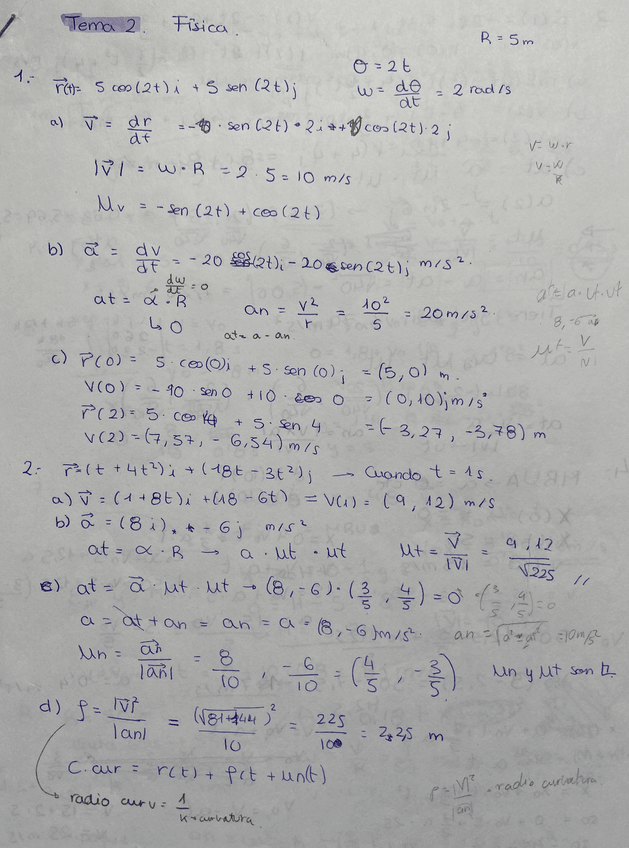 Tema 2. Física.
R = 5m
θ = 2t
1:- r⃗(t)= 5 cos(2t)i + 5 sen(2t)j    ω = dθ/dt = 2 rad/s
a) v⃗ = dr/dt = - sen(2t)·2i + cos(2t)·2j
v = ω·r
|v⃗| = ω·R = 2·5 = 10 m/s
Mv = -sen(2t) + cos(2t)
b) a⃗ = dv/dt = -20 cos(2t)i - 20 sen(2t)j m/s².
dω/dt = 0
at = α·R    an = v²/r = 10²/5 = 20 m/s².
↳ 0    at = a - an
at = a · ut · ut
8, -6
ut = V/|V|
c) r⃗(0) = 5·cos(0)i + 5·sen(0)j = (5, 0) m.
v(0) = -10·sen 0 + 10·cos 0 = (0, 10)j m/s
r⃗(2) = 5·cos 4 + 5·sen 4 = (-3,27, -3,78) m
v(2) = (7,57, -6,54) m/s
2:- r⃗=(t + 4t²)i + (18t - 3t²)j → Cuando t = 1s.
a) v⃗ = (1+8t)i + (18 - 6t) = v(1) = (9, 12) m/s
b) a⃗ = (8i) - 6j m/s²
at = α·R → a · ut · ut    ut = v⃗/|v⃗| = 9,12/√225 //
c) at = a⃗ · ut · ut → (8,-6)·(3/5, 4/5) = 0 · (3/5, 4/5) = 0
a = at + an = an = a = (8,-6) m/s²    an = √a²-at² = 10m/s²
un = an⃗/|an⃗| = 8/10, -6/10 = (4/5, -3/5)    un y ut son ⊥.
d) ρ = |v⃗|²/|an| = (√81+144)²/10 = 225/10 = 22,5 m
C. cur = r(t) + ρ(t + un(t)
ρ = |V|²/|an| · radio curvatura
→ radio curv = 1/κ→curvatura.